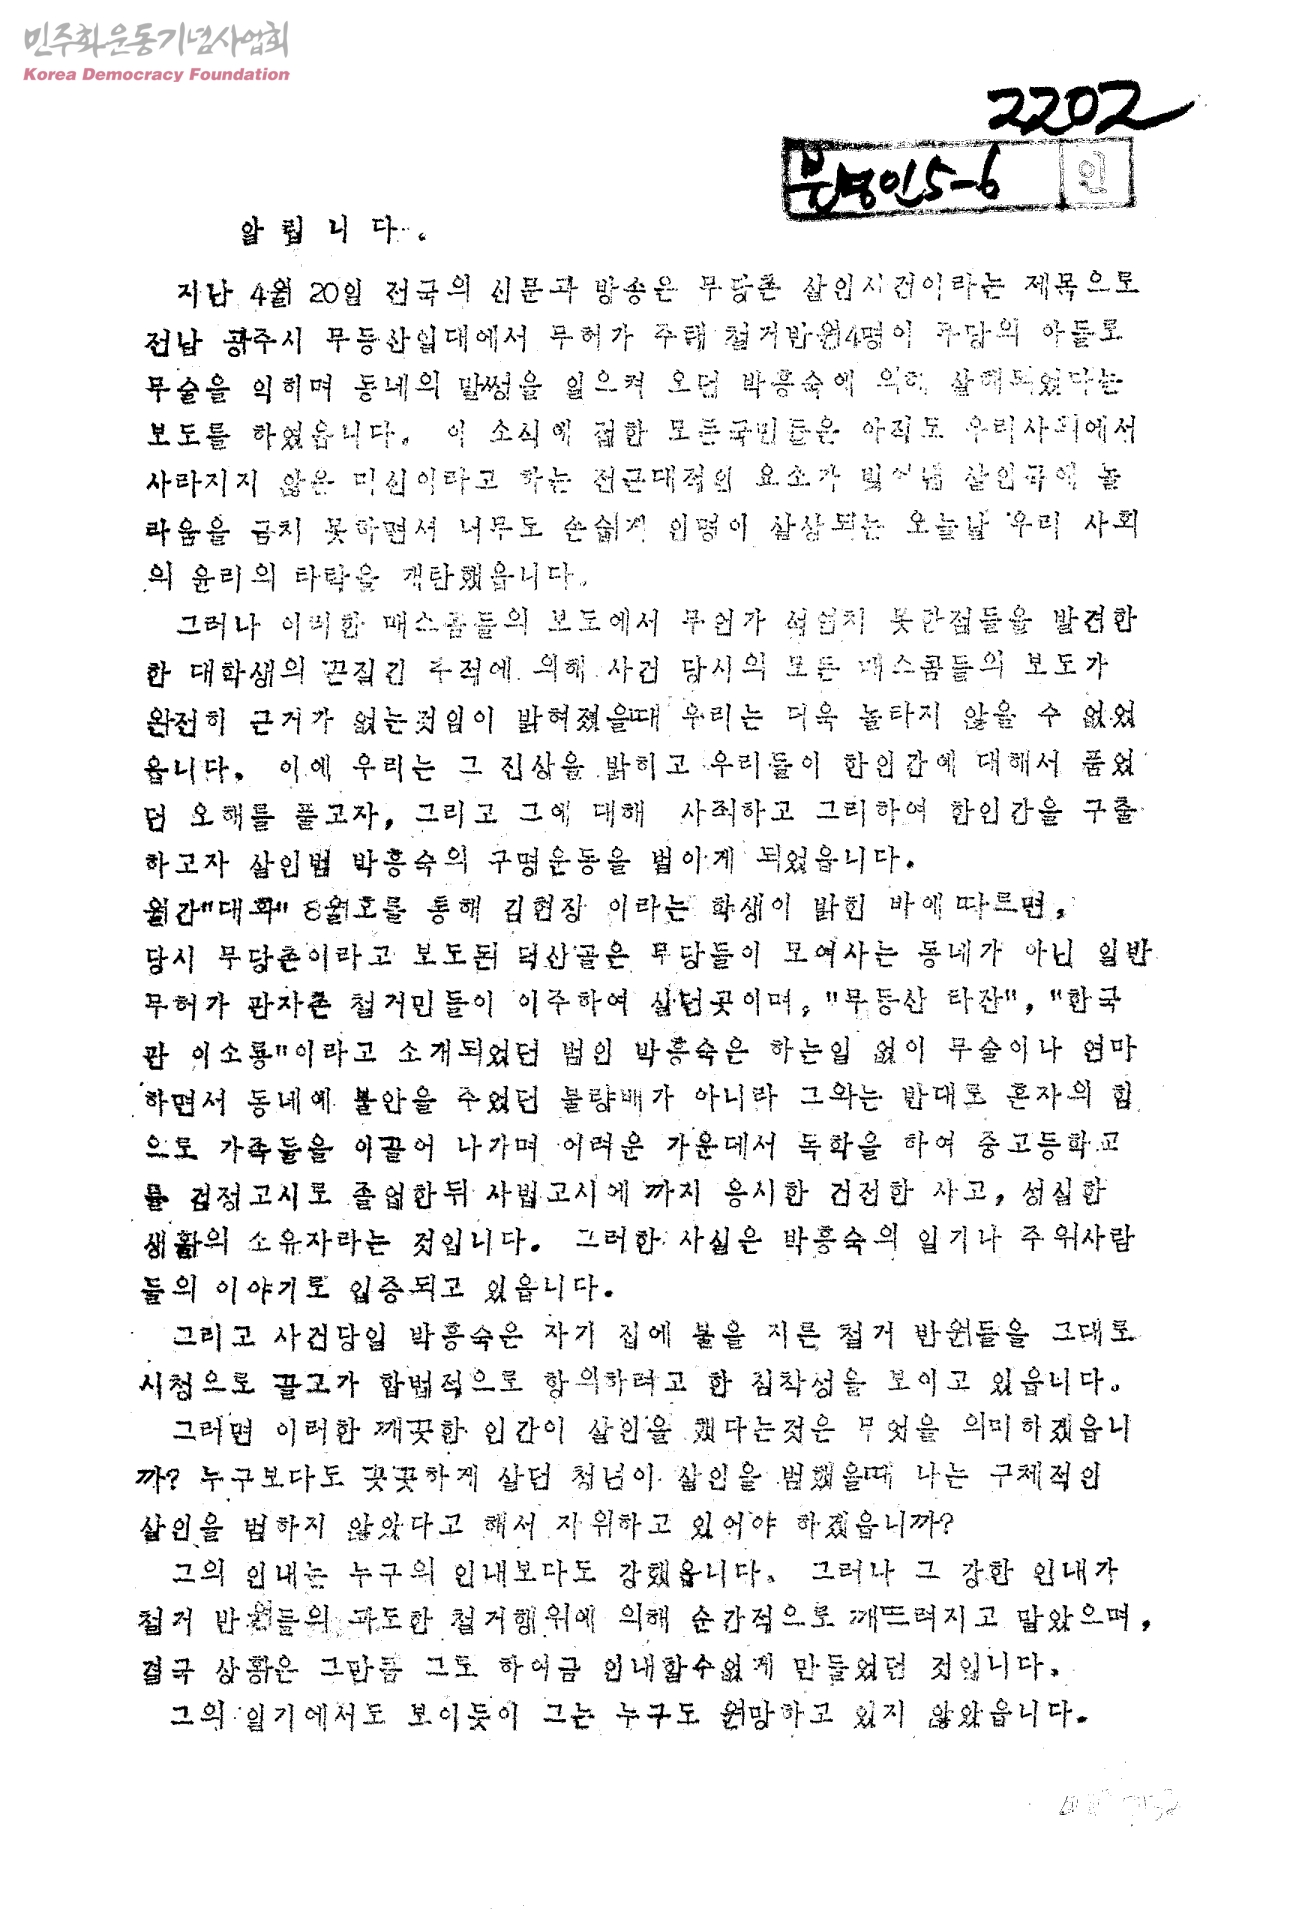 민주화운동기념사업회
Korea Democracy Foundation
2202
분영인5-6 인
알립니다.
지난 4월 20일 전국의 신문과 방송은 무당촌 살인사건이라는 제목으로
전남 광주시 무등산일대에서 무허가 주택 철거반원4명이 무당의 아들로
무술을 익히며 동네의 말썽을 일으켜 오던 박흥숙에 의해 살해되었다는
보도를 하였읍니다. 이 소식에 접한 모든국민들은 아직도 우리사회에서
사라지지 않은 미신이라고 하는 전근대적인 요소가 빚어낸 살인극에 놀
라움을 금치 못하면서 너무도 손쉽게 인명이 살상되는 오늘날 우리 사회
의 윤리의 타락을 개탄했읍니다.
그러나 이러한 매스콤들의 보도에서 무언가 석연치 못한점들을 발견한
한 대학생의 끈질긴 추적에 의해 사건 당시의 모든 매스콤들의 보도가
완전히 근거가 없는것임이 밝혀졌을때 우리는 더욱 놀라지 않을 수 없었
읍니다. 이에 우리는 그 진상을 밝히고 우리들이 한인간에 대해서 품었
던 오해를 풀고자, 그리고 그에 대해 사죄하고 그리하여 한인간을 구출
하고자 살인범 박흥숙의 구명운동을 벌이게 되었읍니다.
월간"대화" 8월호를 통해 김현장 이라는 학생이 밝힌 바에 따르면,
당시 무당촌이라고 보도된 덕산골은 무당들이 모여사는 동네가 아닌 일반
무허가 판자촌 철거민들이 이주하여 살던곳이며, "무등산 타잔", "한국
판 이소룡"이라고 소개되었던 범인 박흥숙은 하는일 없이 무술이나 연마
하면서 동네에 불안을 주었던 불량배가 아니라 그와는 반대로 혼자의 힘
으로 가족들을 이끌어 나가며 어려운 가운데서 독학을 하여 중고등학교
를 검정고시로 졸업한뒤 사법고시에 까지 응시한 건전한 사고, 성실한
생활의 소유자라는 것입니다. 그러한 사실은 박흥숙의 일기나 주위사람
들의 이야기로 입증되고 있읍니다.
그리고 사건당일 박흥숙은 자기 집에 불을 지른 철거 반원들을 그대로
시청으로 끌고가 합법적으로 항의하려고 한 침착성을 보이고 있읍니다.
그러면 이러한 깨끗한 인간이 살인을 했다는것은 무엇을 의미하겠읍니
까? 누구보다도 꿋꿋하게 살던 청년이 살인을 범했을때 나는 구체적인
살인을 범하지 않았다고 해서 자위하고 있어야 하겠읍니까?
그의 인내는 누구의 인내보다도 강했읍니다. 그러나 그 강한 인내가
철거 반원들의 과도한 철거행위에 의해 순간적으로 깨뜨려지고 말았으며,
결국 상황은 그만큼 그로 하여금 인내할수없게 만들었던 것입니다.
그의 일기에서도 보이듯이 그는 누구도 원망하고 있지 않았읍니다.